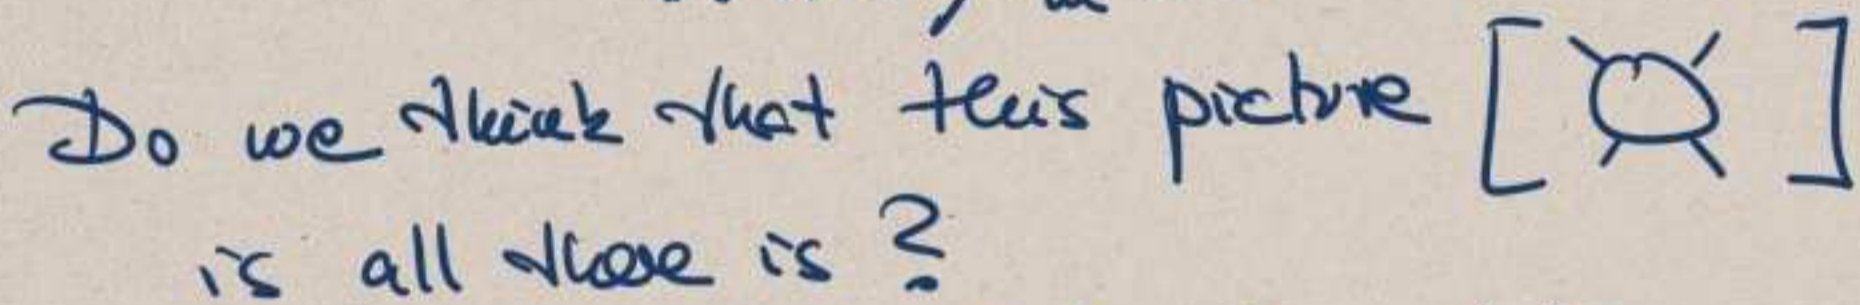 Do we think that this picture [ ]
is all there is?